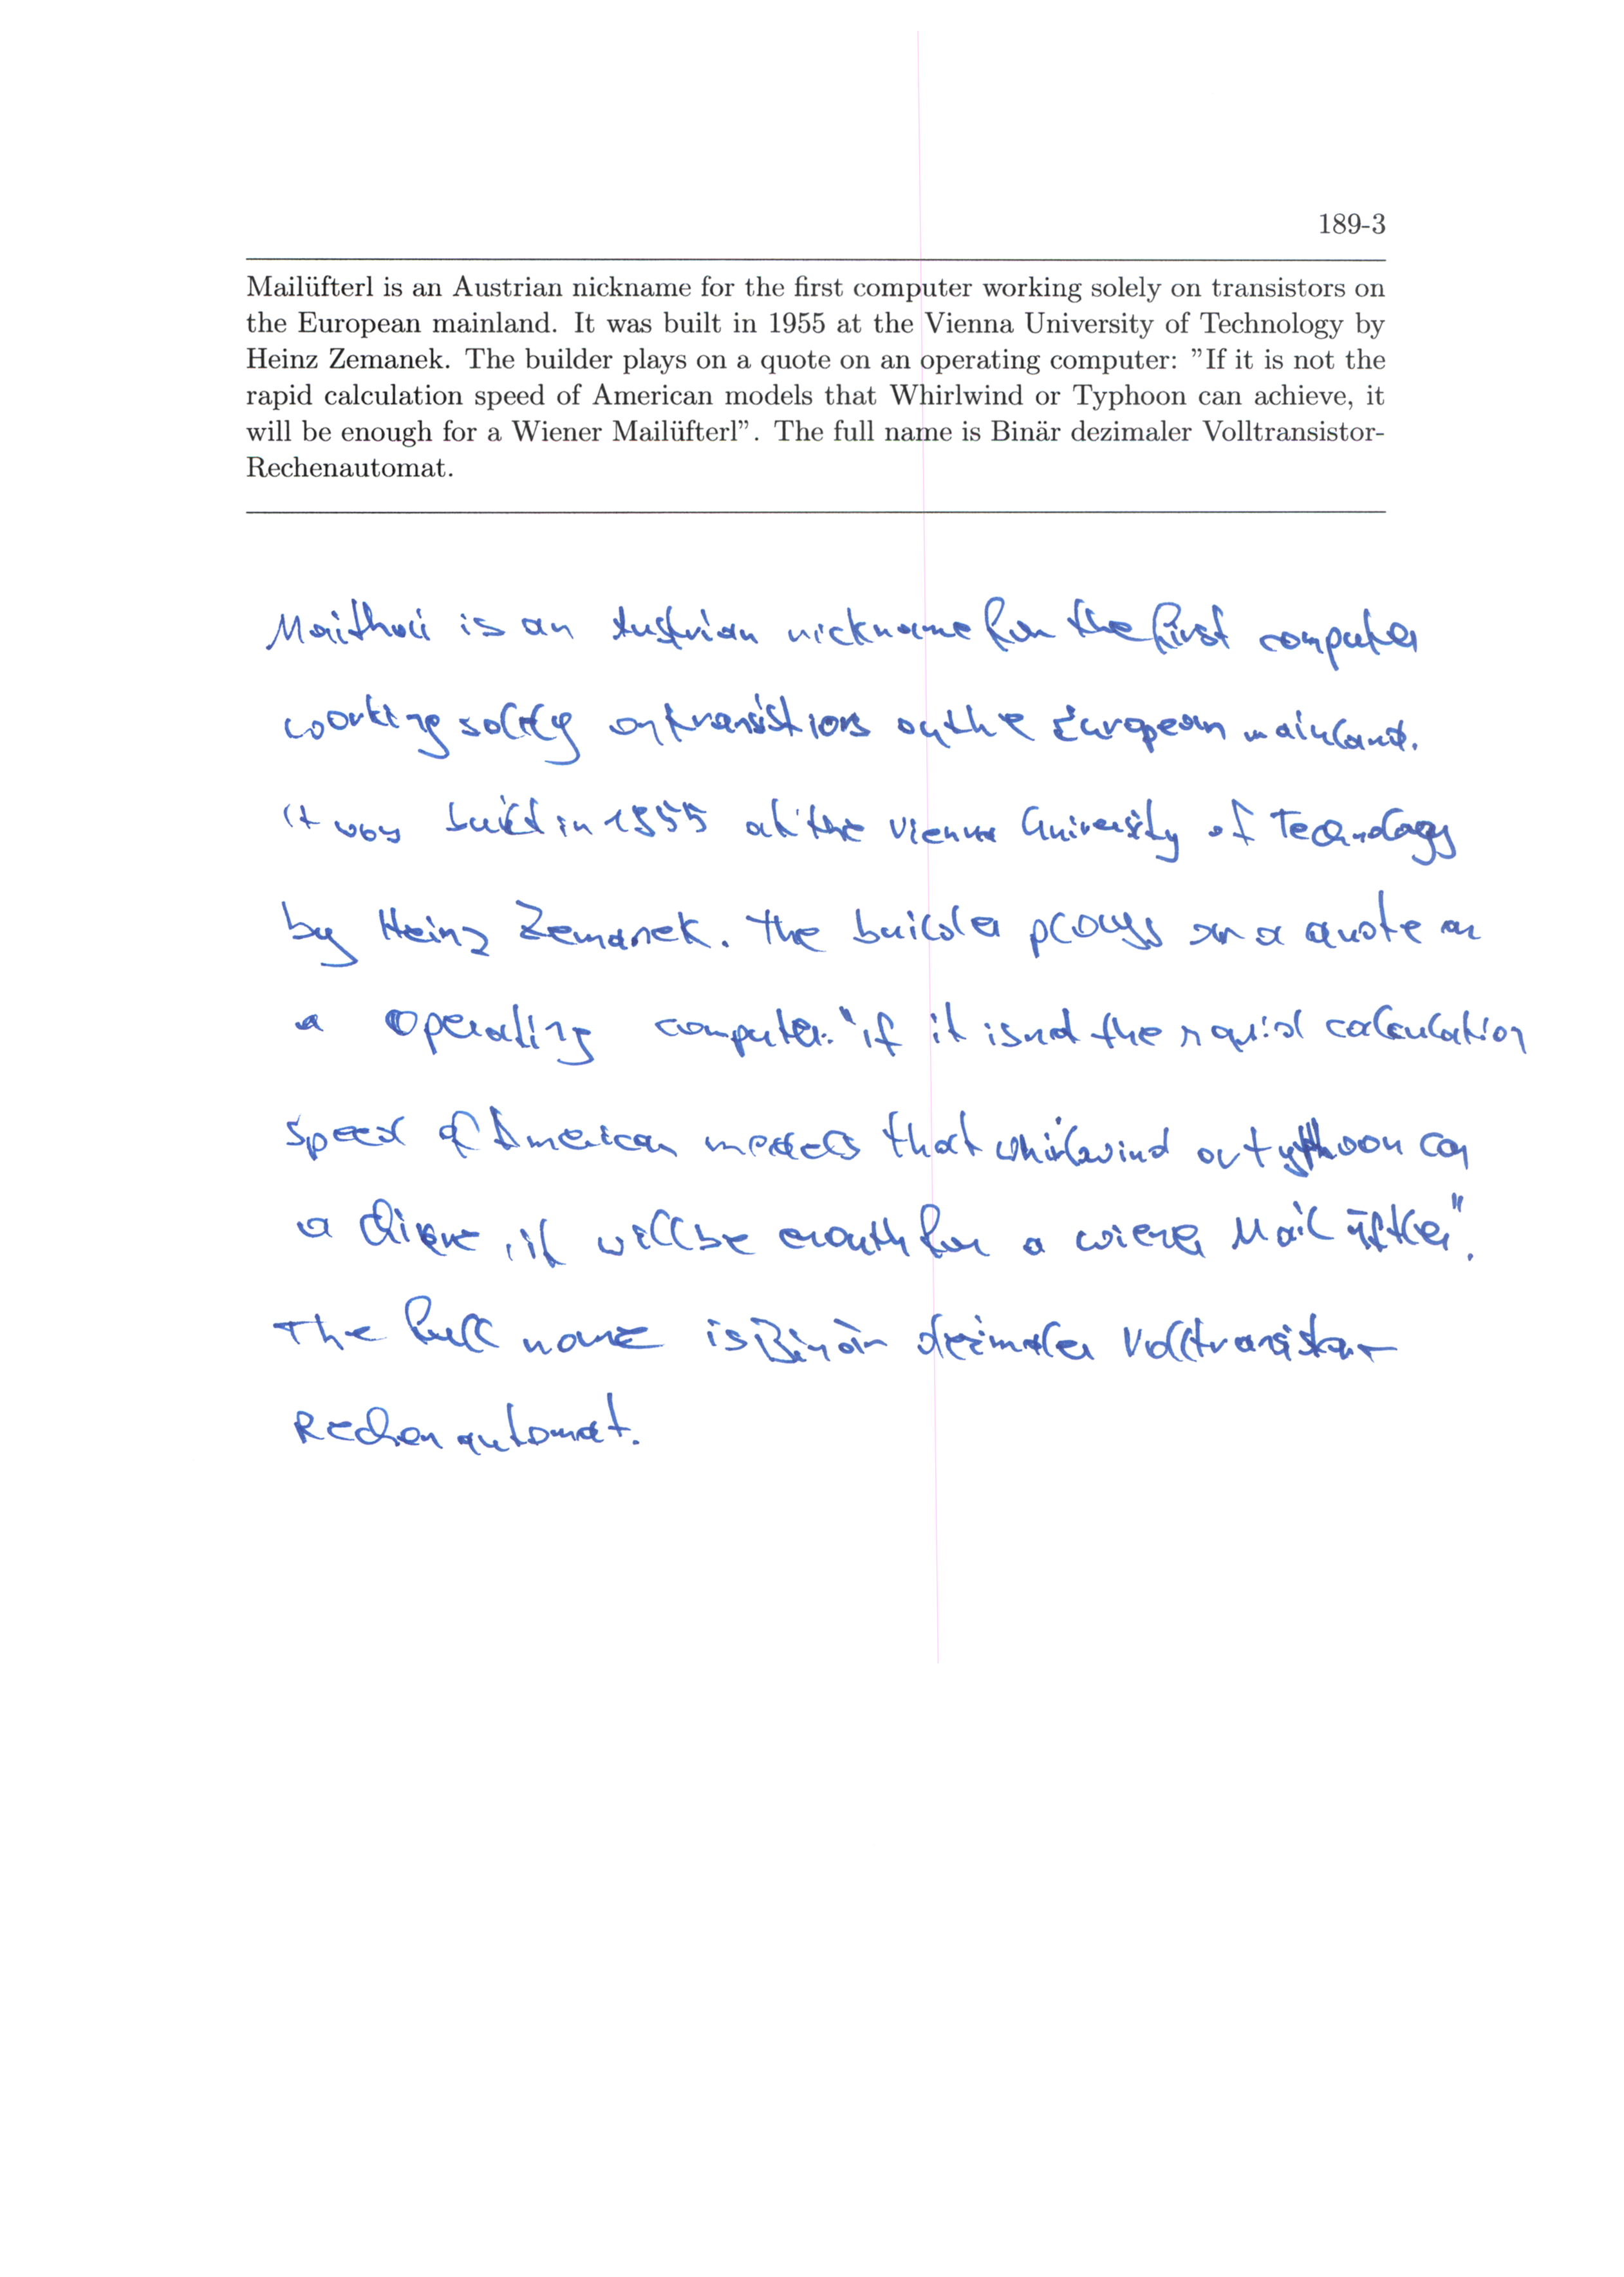 189-3
Mailüfterl is an Austrian nickname for the first computer working solely on transistors on
the European mainland. It was built in 1955 at the Vienna University of Technology by
Heinz Zemanek. The builder plays on a quote on an operating computer: ”If it is not the
rapid calculation speed of American models that Whirlwind or Typhoon can achieve, it
will be enough for a Wiener Mailüfterl”. The full name is Binär dezimaler Volltransistor-
Rechenautomat.
is an Austrian nickname for the first computer
working solely on transistors on the European mainland.
It was built in 1955 at the Vienna University of Technology
by Heinz Zemanek. The builder plays on a quote on
a operating computer: "if it is not the rapid calculation
speed of American models that whirlwind or typhoon can
achieve, it will be for a wiener Mailüfter".
The full name is Binär dezimaler Volltransistor-
Rechenautomat.